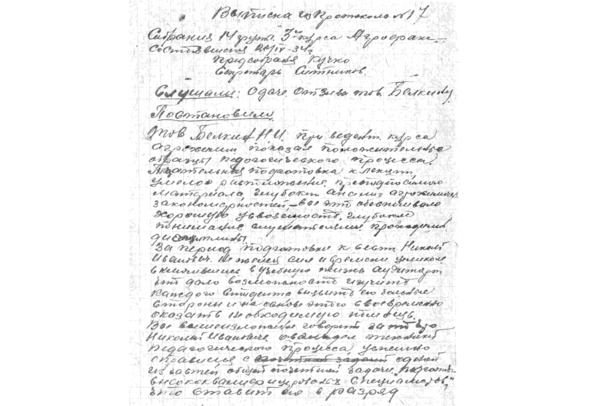 Выписка из Протокола №17
Собрания 14 групп. 3го курса Агрофака
Состоявшегося IV-34г.
Председатель Кучко
Секретарь Ситников.
Слушали: О даче отзыва тов. Белкину
Постановили
Тов Белкин Н.И. при ведении курса
агрохимии показал положительные
образцы педагогического процесса.
Тщательная подготовка к лекции,
умелое расположение преподаваемого
материала, глубокий анализ агрохимич.
закономерностей – все это обеспечивало
хорошую усвояемость, глубокое
понимание слушателями проходимой
дисциплины.
За период подготовки к Николай
Иванович не жалея сил и времени целиком
включившись в учебную жизнь аудитории
что дало возможность изучить
каждого студента выявить его слабые
стороны и на основе этого своевременно
оказать необходимую помощь.
Все вышеизложенное говорит за то что
Николай Иванович овладел техникой
педагогического процесса успешно
справился с одной
из частей общей почетной задачи, подготовки
высококвалифицированных специалистов,
что ставит его в разряд